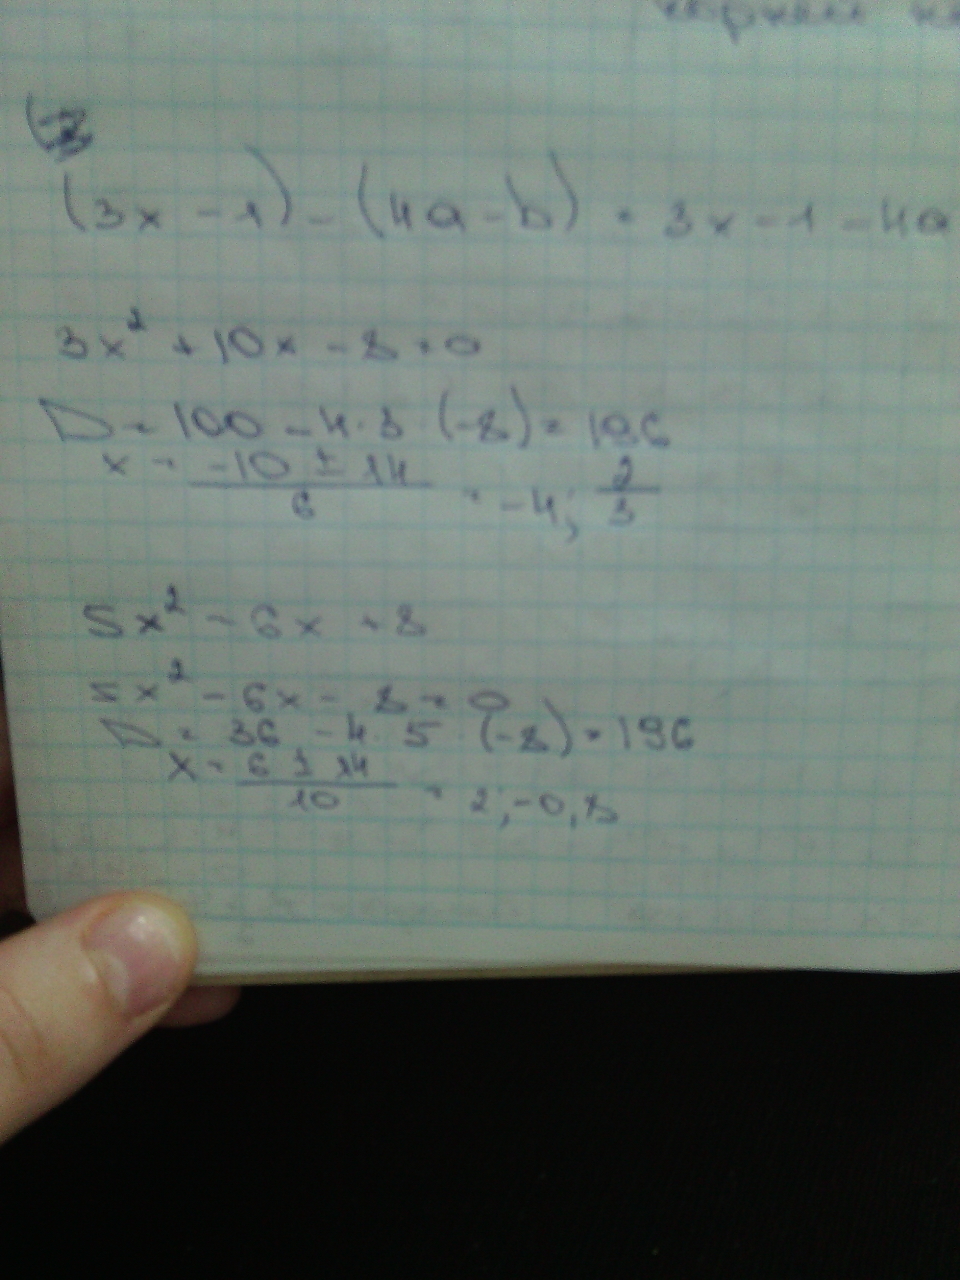 (3x - 1) - (4a - b) = 3x - 1 - 4a
3x² + 10x - 8 = 0
D = 100 - 4 · 3 · (-8) = 196
x = (-10 ± 14)/6 = -4; 2/3
5x² - 6x + 8
5x² - 6x - 8 = 0
D = 36 - 4 · 5 · (-8) = 196
x = (6 ± 14)/10 = 2; -0,8